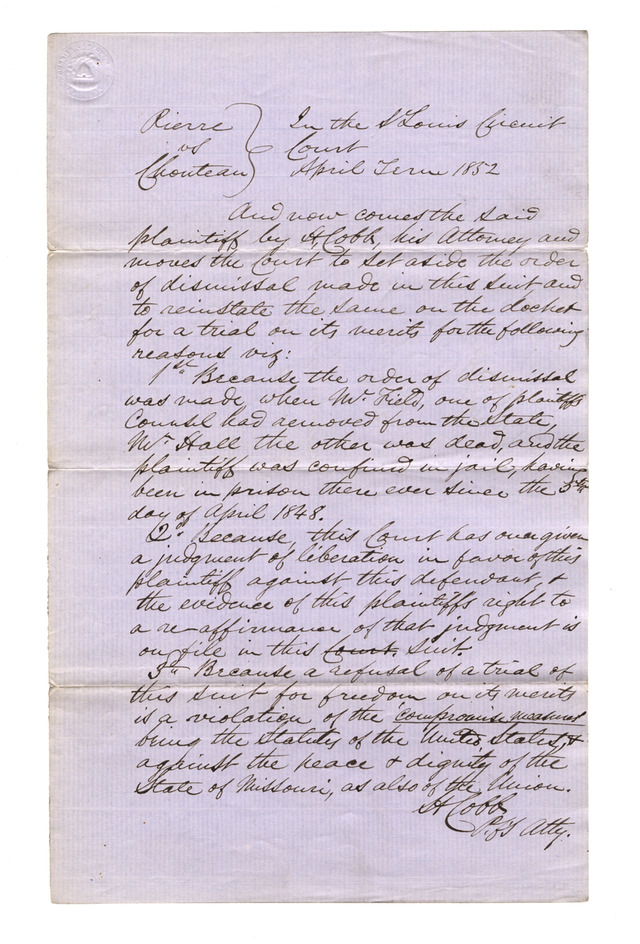 Pierre
vs
Chouteau
In the St Louis Circuit
Court
April Term 1852
And now comes the said
plaintiff by H Cobb, his Attorney and
moves the Court to set aside the order
of dismissal made in this suit and
to reinstate the same on the docket
for a trial on its merits for the following
reasons viz:
1st Because the order of dismissal
was made when Mr Field, one of plaintiffs
Counsel had removed from the State,
Mr Hall the other was dead, and the
plaintiff was confined in jail, having
been in prison there ever since the 5th
day of April 1848.
2d Because, this Court has once given
a judgment of liberation in favor of this
plaintiff against this defendant, &
the evidence of this plaintiffs right to
a re-affirmance of that judgment is
on file in this Court. Suit.
3d Because a refusal of a trial of
this suit for freedom on its merits
is a violation of the compromise measures
being the Statutes of the United States, &
against the peace & dignity of the
State of Missouri, as also of the Union.
H Cobb
Atty.